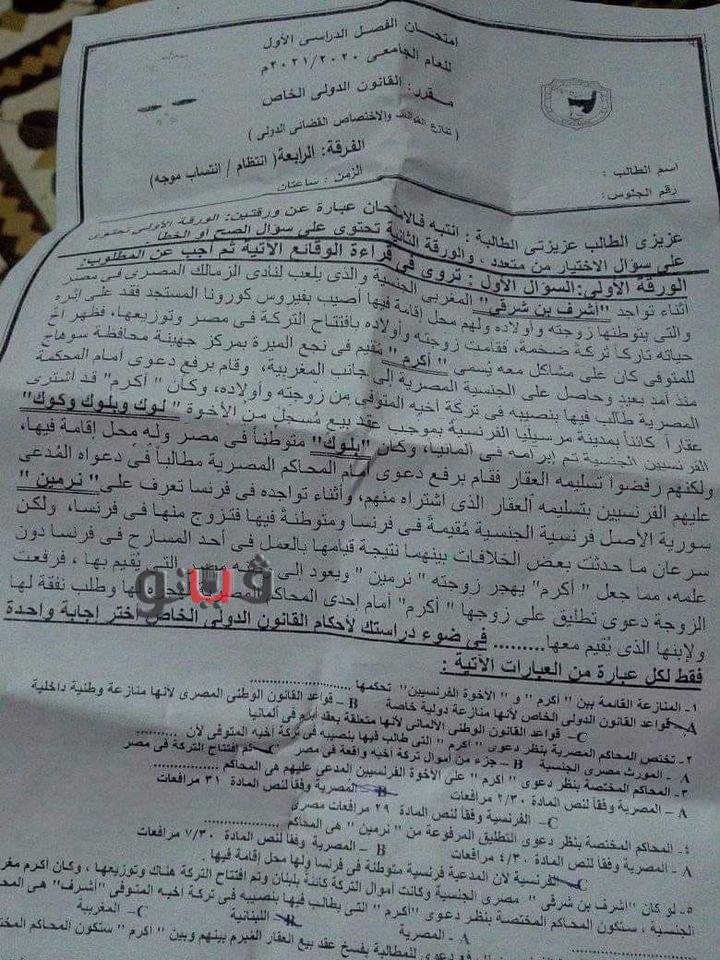 امتحان الفصل الدراسى الأول
للعام الجامعى ٢٠٢١/٢٠٢٠م
مقرر: القانون الدولى الخاص
( تنازع القوانين والاختصاص القضائى الدولى )
الفرقة: الرابعة( انتظام / انتساب موجه)
الزمن : ساعتان
اسم الطالب :
رقم الجلوس:
عزيزى الطالب عزيزتى الطالبة : انتبه فالامتحان عبارة عن ورقتين: الورقة الأولى تحتوى
على سؤال الاختيار من متعدد ، والورقة الثانية تحتوى على سؤال الصح أو الخطأ
الورقة الأولى: السؤال الأول : تروى فى قراءة الوقائع الآتية ثم أجب عن المطلوب:
أثناء تواجد "أشرف بن شرقى" المغربى الجنسية والذى يلعب لنادى الزمالك المصرى فى مصر
والتى يتوطنها زوجته وأولاده ولهم محل إقامة فيها أصيب بفيروس كورونا المستجد فقد على إثره
حياته تاركاً تركة ضخمة، فقامت زوجته وأولاده بافتتاح التركة فى مصر وتوزيعها، فظهر أخ
للمتوفى كان على مشاكل معه يُسمى "أكرم" مُقيم فى نجع الميرة بمركز جهينة محافظة سوهاج
منذ أمد بعيد وحاصل على الجنسية المصرية إلى جانب المغربية، وقام برفع دعوى أمام المحكمة
المصرية طالب فيها بنصيبه فى تركة أخيه المتوفى من زوجته وأولاده، وكان "أكرم" قد اشترى
عقاراً كائناً بمدينة مرسيليا الفرنسية بموجب عقد بيع مُسجل من الأخوة "لوك وبلوك وكوك"
الفرنسيين الجنسية تم إبرامه فى ألمانيا، وكان "بلوك" متوطناً فى مصر وله محل إقامة فيها،
ولكنهم رفضوا تسليمه العقار فقام برفع دعوى أمام المحاكم المصرية مطالباً فى دعواه المُدعى
عليهم الفرنسيين بتسليمه العقار الذى اشتراه منهم، وأثناء تواجده فى فرنسا تعرف على "نرمين"
سورية الأصل فرنسية الجنسية مُقيمة فى فرنسا ومتوطنة فيها فتزوج منها فى فرنسا، ولكن
سرعان ما حدثت بعض الخلافات بينهما نتيجة قيامها بالعمل فى أحد المسارح فى فرنسا دون
علمه، مما جعل "أكرم" يهجر زوجته "نرمين" ويعود إلى مصر التى يُقيم بها ، فرفعت
الزوجة دعوى تطليق على زوجها "أكرم" أمام إحدى المحاكم المصرية لها وطلب نفقة لها
ولإبنها الذى يُقيم معها......... فى ضوء دراستك لأحكام القانون الدولى الخاص أختر إجابة واحدة
فقط لكل عبارة من العبارات الآتية :
١- المنازعة القائمة بين "أكرم" و "الأخوة الفرنسيين" تحكمها ................
A- قواعد القانون الدولى الخاص لأنها منازعة دولية خاصة B - قواعد القانون الوطنى المصرى لأنها منازعة وطنية داخلية
C- قواعد القانون الوطنى الألمانى لأنها متعلقة بعقد أبرم فى ألمانيا
٢- تختص المحاكم المصرية بنظر دعوى "أكرم" التى طالب فيها بنصيبه فى تركة أخيه المتوفى لأن .........
A - المورث مصرى الجنسية B – جزء من أموال تركة أخيه واقعة فى مصر C- تم إفتتاح التركة فى مصر
٣- المحاكم المختصة بنظر دعوى "أكرم" على الأخوة الفرنسيين المدعى عليهم هى المحاكم ..............
A - المصرية وفقاً لنص المادة ٢/٣٠ مرافعات B - المصرية وفقاً لنص المادة ٣١ مرافعات
C- الفرنسية وفقاً لنص المادة ٢٩ مرافعات مصرى
٤- المحاكم المختصة بنظر دعوى التطليق المرفوعة من "نرمين" هى المحاكم ................
A - المصرية وفقاً لنص المادة ٤/٣٠ مرافعات B - المصرية وفقاً لنص المادة ٧/٣٠ مرافعات
C- الفرنسية لأن المدعية فرنسية متوطنة فى فرنسا ولها محل إقامة فيها.
٥- لو كان "أشرف بن شرقى" مصرى الجنسية وكانت أموال التركة كائنة بلبنان وتم افتتاح التركة هناك وتوزيعها ، وكان أكرم
الجنسية ، ستكون المحاكم المختصة بنظر دعوى "أكرم" التى يطالب فيها بنصيبه فى تركة أخيه المتوفى "أشرف" هى
A - المصرية B- اللبنانية C- المغربية
دعوى للمطالبة بفسخ عقد بيع العقار المُبرم بينهم وبين "أكرم" ستكون المحاكم
ڤيتو